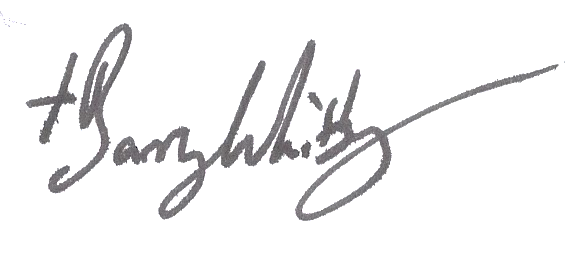 + Barry Whitty